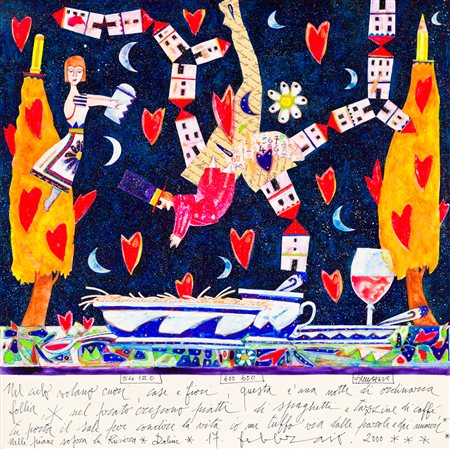 54.120 600 600
Nel cielo volano cuori, case e fiori, questa è una notte di ordinaria
follia, * nel prato crescono piatti di spaghetti e tazzine di caffè
tu porta il sale per condire la vita io mi tuffo via dalle parole e dai numeri
nelle piane sopra la Riviera * * 17. febbraio. 2000 * * *